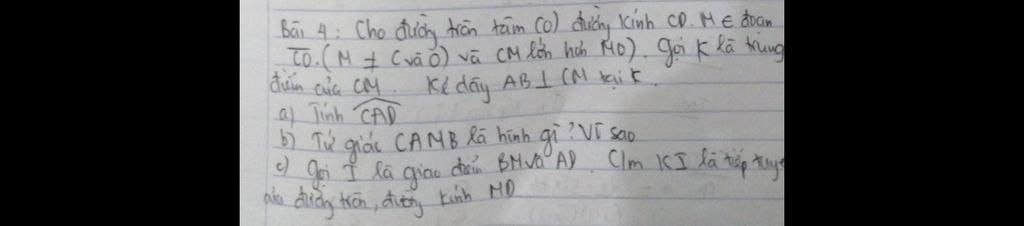 Bài 4: Cho đường tròn tâm (O) đường kính CD. M ∈ đoạn
CO. (M ≠ C và O) và CM lớn hơn MO). gọi K là trung
điểm của CM. Kẻ dây AB ⊥ CM tại K.
a) Tính CAD
b) Tứ giác CAMB là hình gì? Vì sao
c) gọi I là giao điểm BM và AD. C/m KI là tiếp tuyế
của đường tròn, đường kính MD